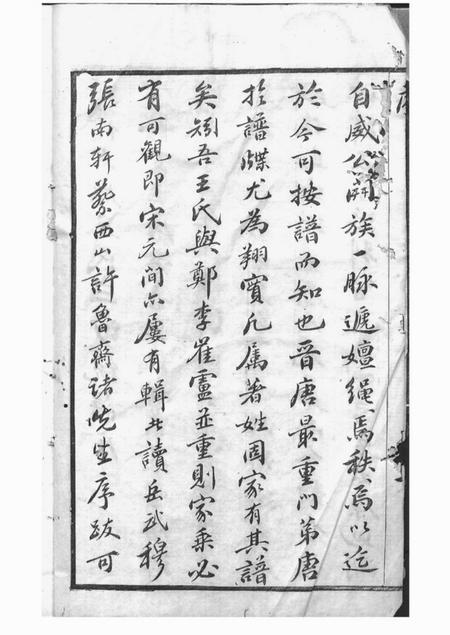 自威公辟族一脉遞嬗繩焉秩焉以迄
於今可按譜而知也晋唐最重門第唐
於譜牒尤為翔實凡属著姓固家有其譜
矣矧吾王氏與鄭李崔盧並重則家乘必
有可觀即宋元间亦屢有輯此讀岳武穆
張南軒蔡西山許魯齋諸先生序跋可